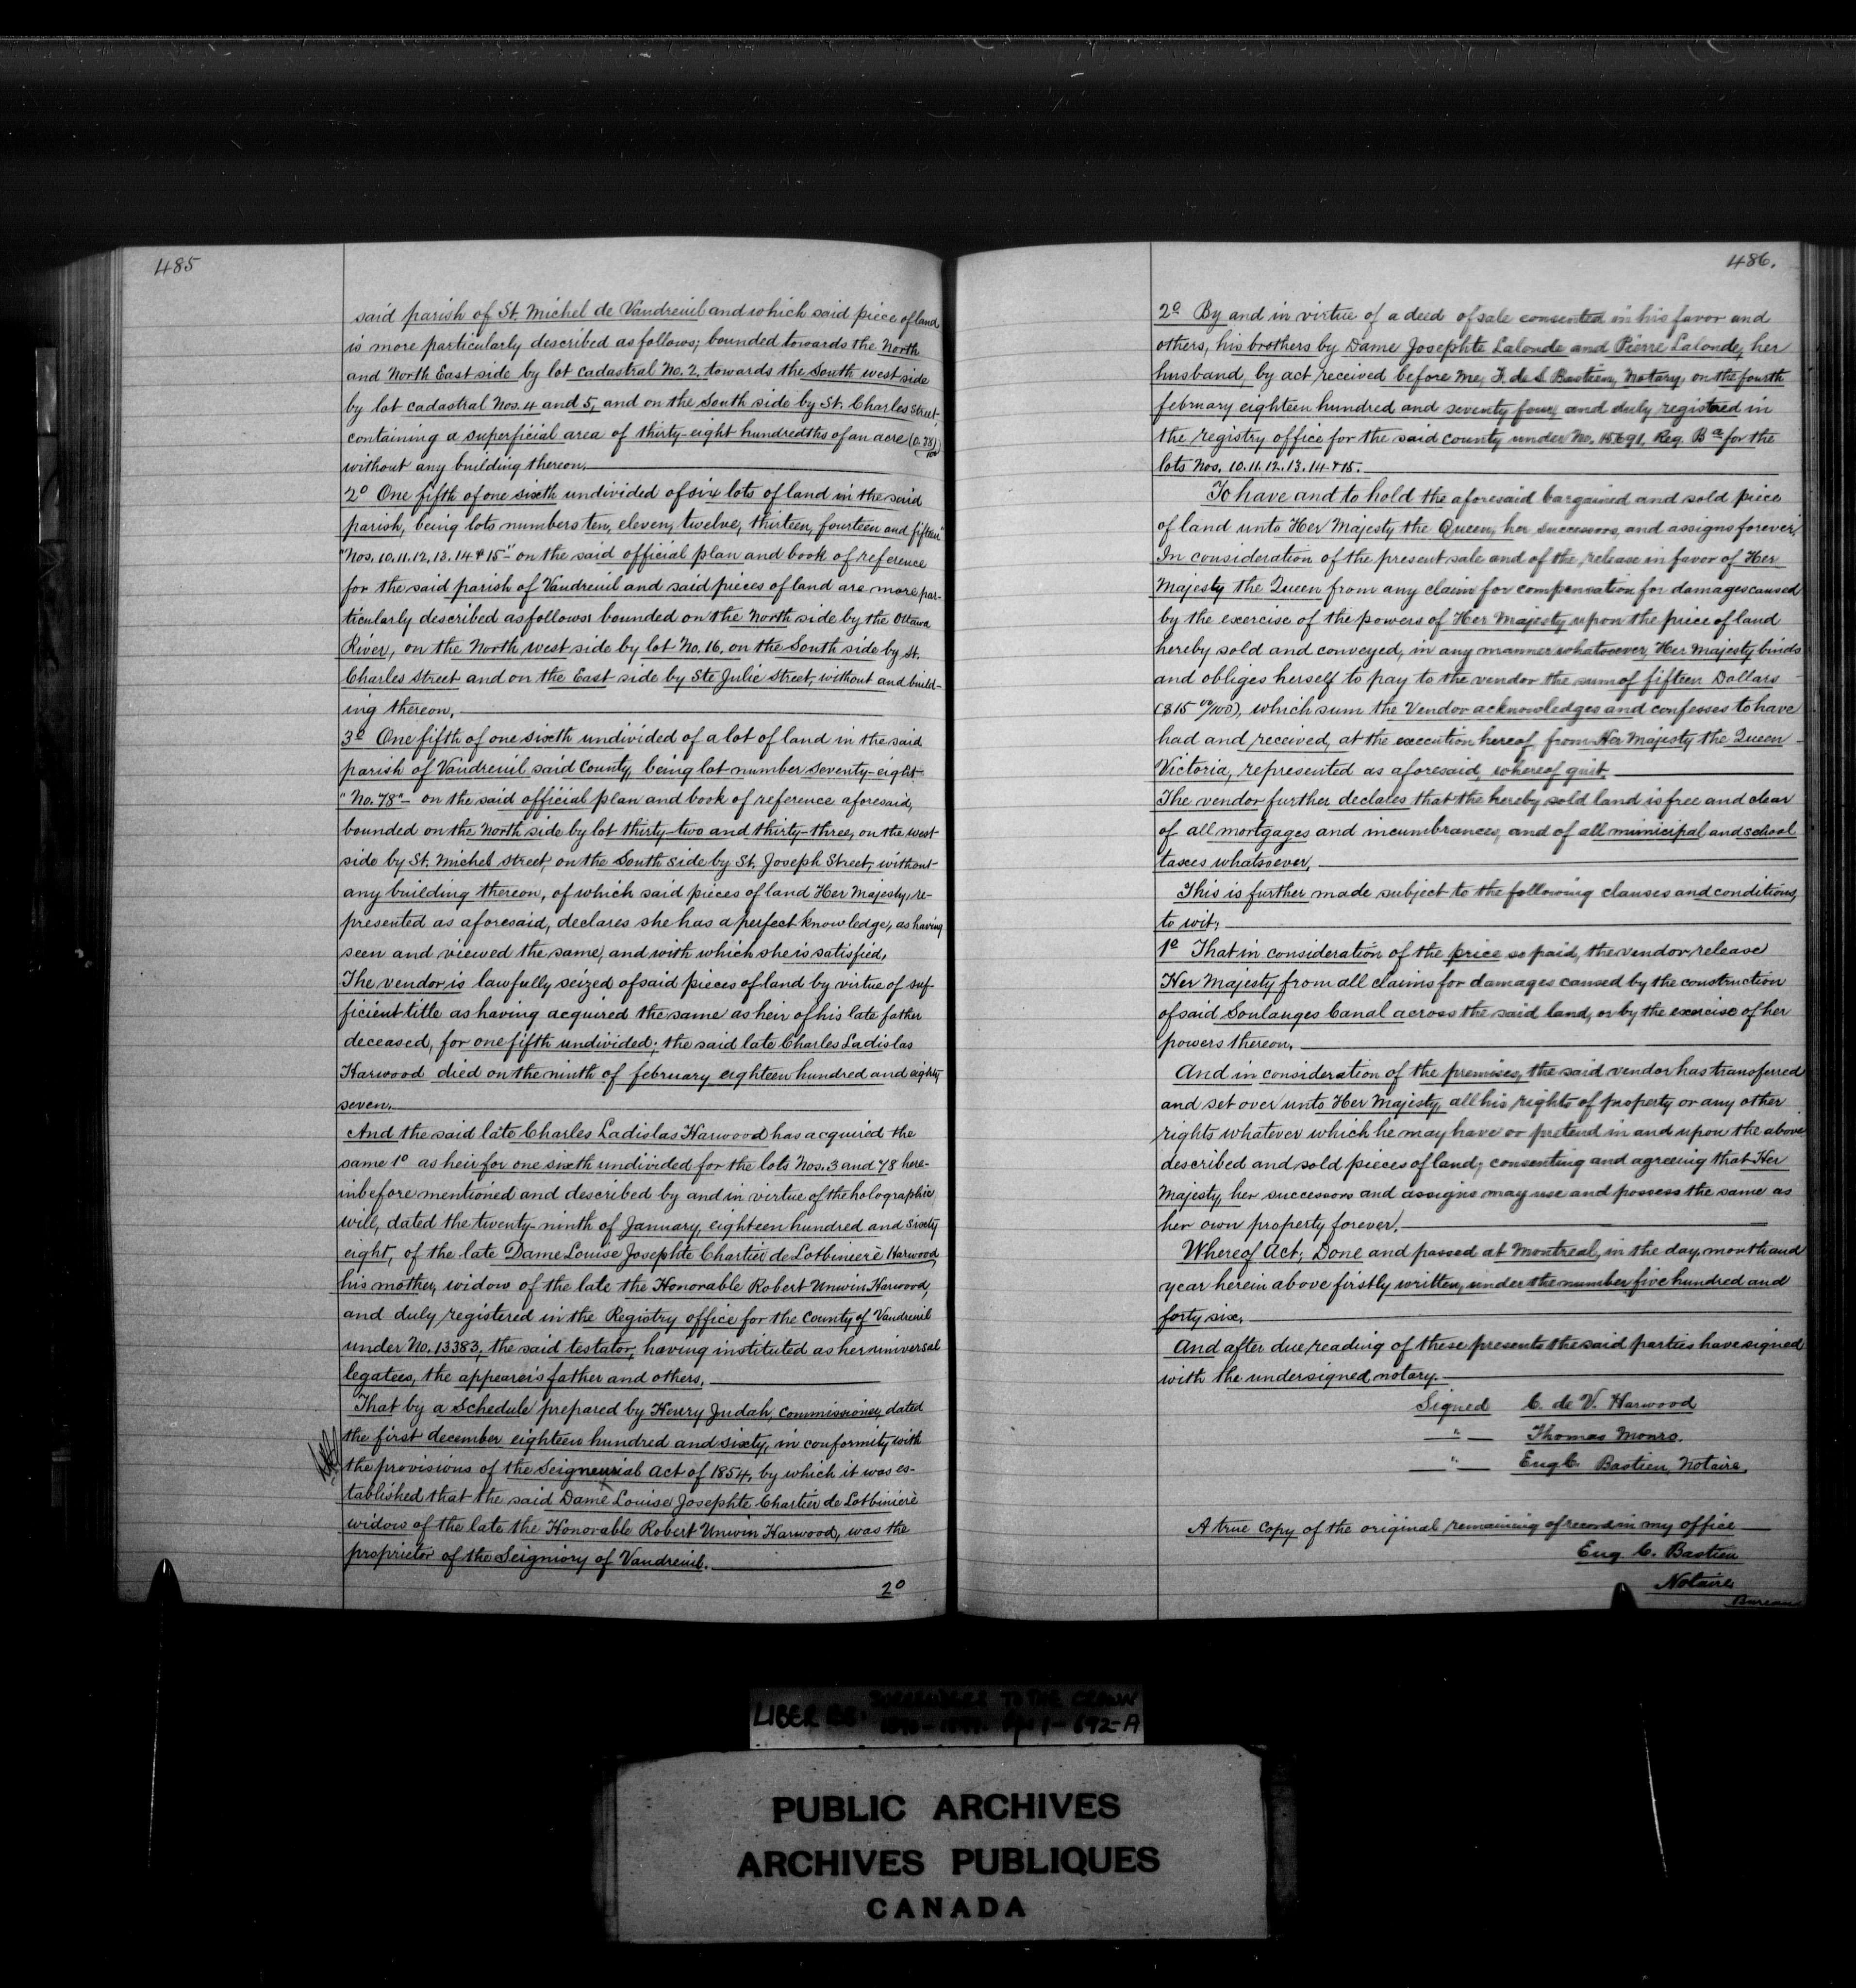 485
said parish of St. Michel de Vaudreuil and which said piece of land
is more particularly described as follows; bounded towards the North
and North East side by lot cadastral No. 2. towards the South west side
by lot cadastral Nos. 4 and 5, and on the South side by St. Charles Street,
containing a superficial area of thirty-eight hundredths of an acre
without any building thereon.
2º One fifth of one sixth undivided of six lots of land in the said
parish, being lots numbers ten, eleven, twelve, thirteen, fourteen and fifteen
"Nos. 10. 11. 12. 13. 14 & 15" on the said official plan and book of reference
for the said parish of Vaudreuil and said pieces of land are more par-
ticularly described as follows: bounded on the North side by the Ottawa
River, on the North west side by lot No. 16. on the South side by St.
Charles Street and on the East side by Ste Julie Street, without and build-
ing thereon.
3º One fifth of one sixth undivided of a lot of land in the said
parish of Vaudreuil said County, being lot number seventy-eight
"No. 78" on the said official plan and book of reference aforesaid,
bounded on the North side by lot thirty-two and thirty-three, on the west
side by St. Michel street, on the South side by St. Joseph Street, without
any building thereon, of which said pieces of land Her Majesty, re-
presented as aforesaid, declares she has a perfect knowledge, as having
seen and viewed the same, and with which she is satisfied.
The vendor is lawfully seized of said pieces of land by virtue of suf-
ficient title as having acquired the same as heir of his late father
deceased, for one fifth undivided; the said late Charles Ladislas
Harwood died on the ninth of february eighteen hundred and eighty
seven.
And the said late Charles Ladislas Harwood has acquired the
same 1º as heir for one sixth undivided for the lots Nos. 3 and 78 here-
inbefore mentioned and described by and in virtue of the holographic
will, dated the twenty-ninth of January, eighteen hundred and sixty
eight, of the late Dame Louise Josephte Chartier de Lotbinierè Harwood,
his mother, widow of the late the Honorable Robert Unwin Harwood,
and duly registered in the Registry office for the County of Vaudreuil
under No. 13383, the said testator, having instituted as her universal
legatees, the appearer's father and others.
That by a Schedule prepared by Henry Judah, Commissioner, dated
the first december eighteen hundred and sixty, in conformity with
the provisions of the Seigneurial Act of 1854, by which it was es-
tablished that the said Dame Louise Josephte Chartier de Lotbinierè
widow of the late the Honorable Robert Unwin Harwood, was the
proprietor of the Seigniory of Vaudreuil.
2º
486.
2º By and in virtue of a deed of sale consented in his favor and
others, his brothers by Dame Josephte Lalonde and Pierre Lalonde, her
husband, by act received before me, F. de S. Bastien, Notary, on the fourth
february eighteen hundred and seventy four, and duly registered in
the registry office for the said county under No. 15691, Reg. Bª for the
lots Nos. 10. 11. 12. 13. 14 & 15.
To have and to hold the aforesaid bargained and sold piece
of land unto Her Majesty the Queen, her successors, and assigns forever.
In consideration of the present sale and of the release in favor of Her
Majesty the Queen from any claim for compensation for damages caused
by the exercise of the powers of Her Majesty upon the piece of land
hereby sold and conveyed, in any manner whatsoever, Her Majesty binds
and obliges herself to pay to the vendor the sum of fifteen Dollars
($15 00/100), which sum the Vendor acknowledges and confesses to have
had and received, at the execution hereof from Her Majesty the Queen
Victoria, represented as aforesaid, whereof quit.
The vendor further declares that the hereby sold land is free and clear
of all mortgages and incumbrances, and of all municipal and school
taxes whatsoever.
This is further made subject to the following clauses and conditions,
to wit;
1º That in consideration of the price so paid, the vendor release
Her Majesty from all claims for damages caused by the construction
of said Soulanges Canal across the said land, or by the exercise of her
powers thereon.
And in consideration of the premises, the said vendor has transferred
and set over unto Her Majesty, all his rights of property or any other
rights whatever which he may have or pretend in and upon the above
described and sold pieces of land; consenting and agreeing that Her
Majesty, her successors and assigns may use and possess the same as
her own property forever.
Whereof Act; Done and passed at Montreal, in the day, month and
year herein above firstly written, under the number five hundred and
forty six.
And after due reading of these presents the said parties have signed
with the undersigned notary.
Signed C. de V. Harwood
" Thomas Monro.
" Eug C. Bastien, Notaire.
A true Copy of the original remaining of record in my office
Eug. C. Bastien
Notaire
Bureau
LIBER BB: SURRENDERS TO THE CROWN
PUBLIC ARCHIVES
ARCHIVES PUBLIQUES
CANADA